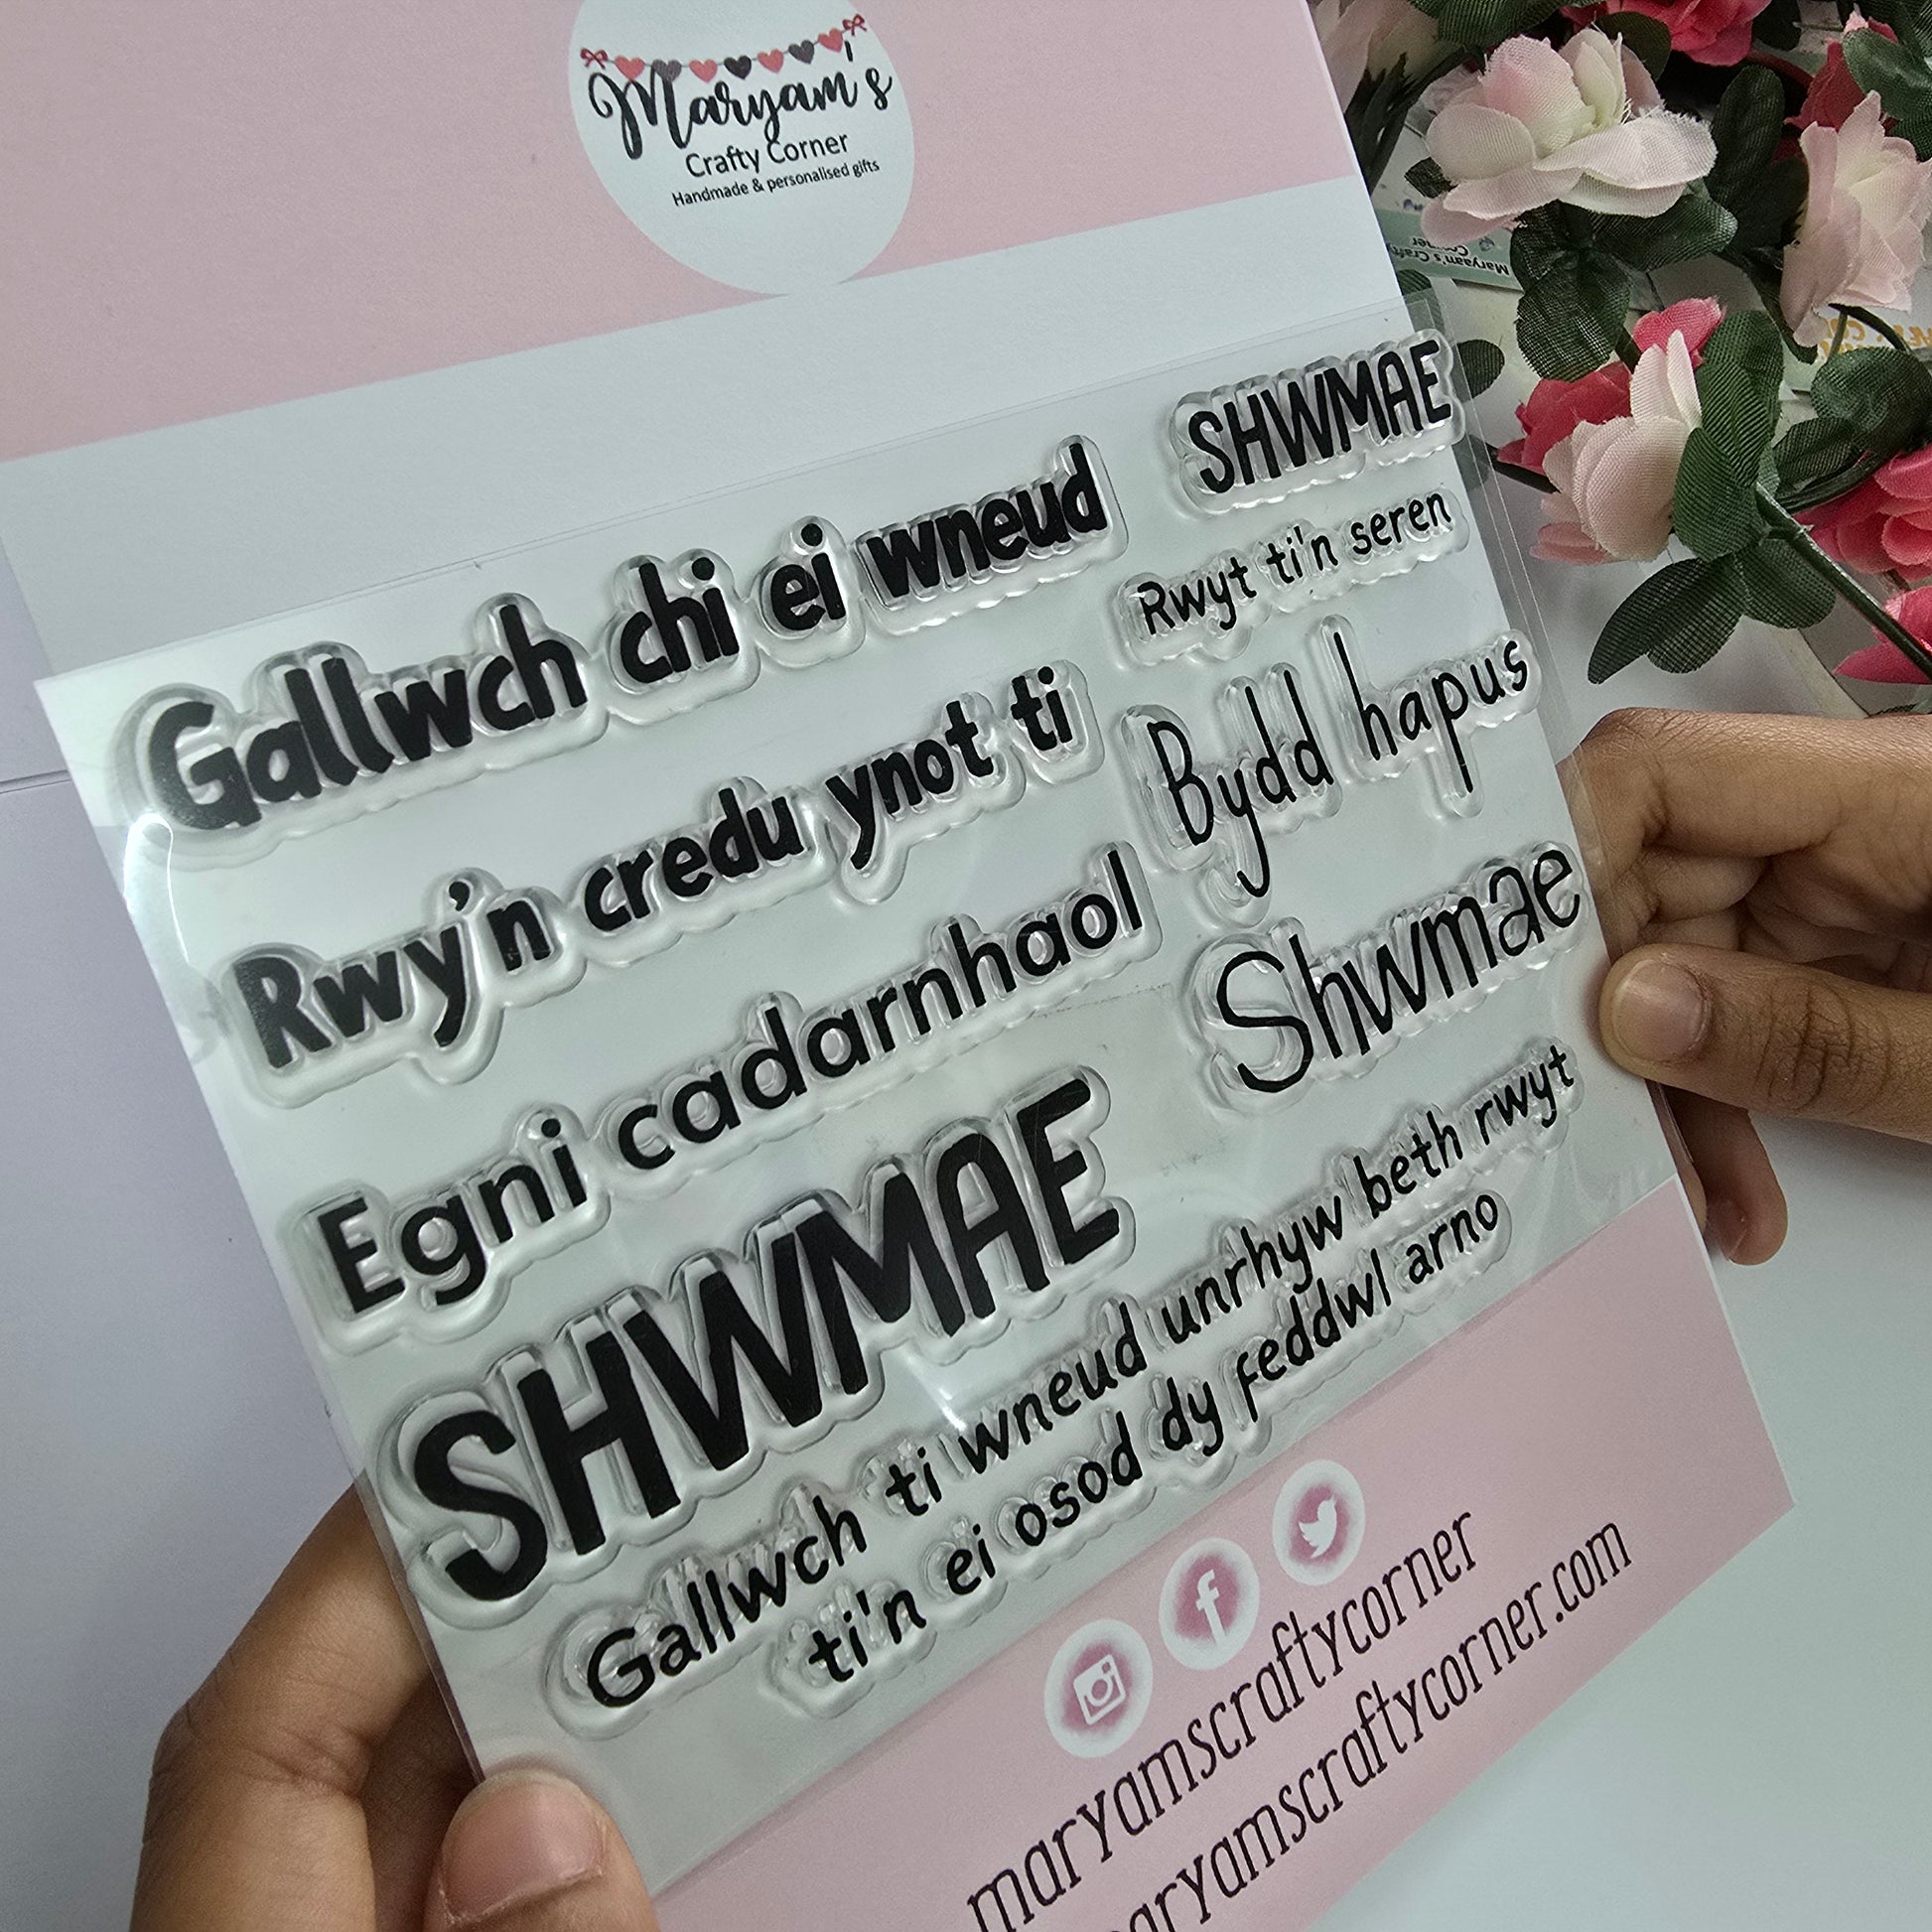 Maryam's
Crafty Corner
Handmade & personalised gifts
Maryam's Crafty
Corner
SHWMAE
Gallwch chi ei wneud
Rwyt ti'n seren
Rwy'n credu ynot ti
Bydd hapus
Egni cadarnhaol
Shwmae
SHWMAE
Gallwch ti wneud unrhyw beth rwyt
ti'n ei osod dy feddwl arno
maryamscraftycorner
maryamscraftycorner.com